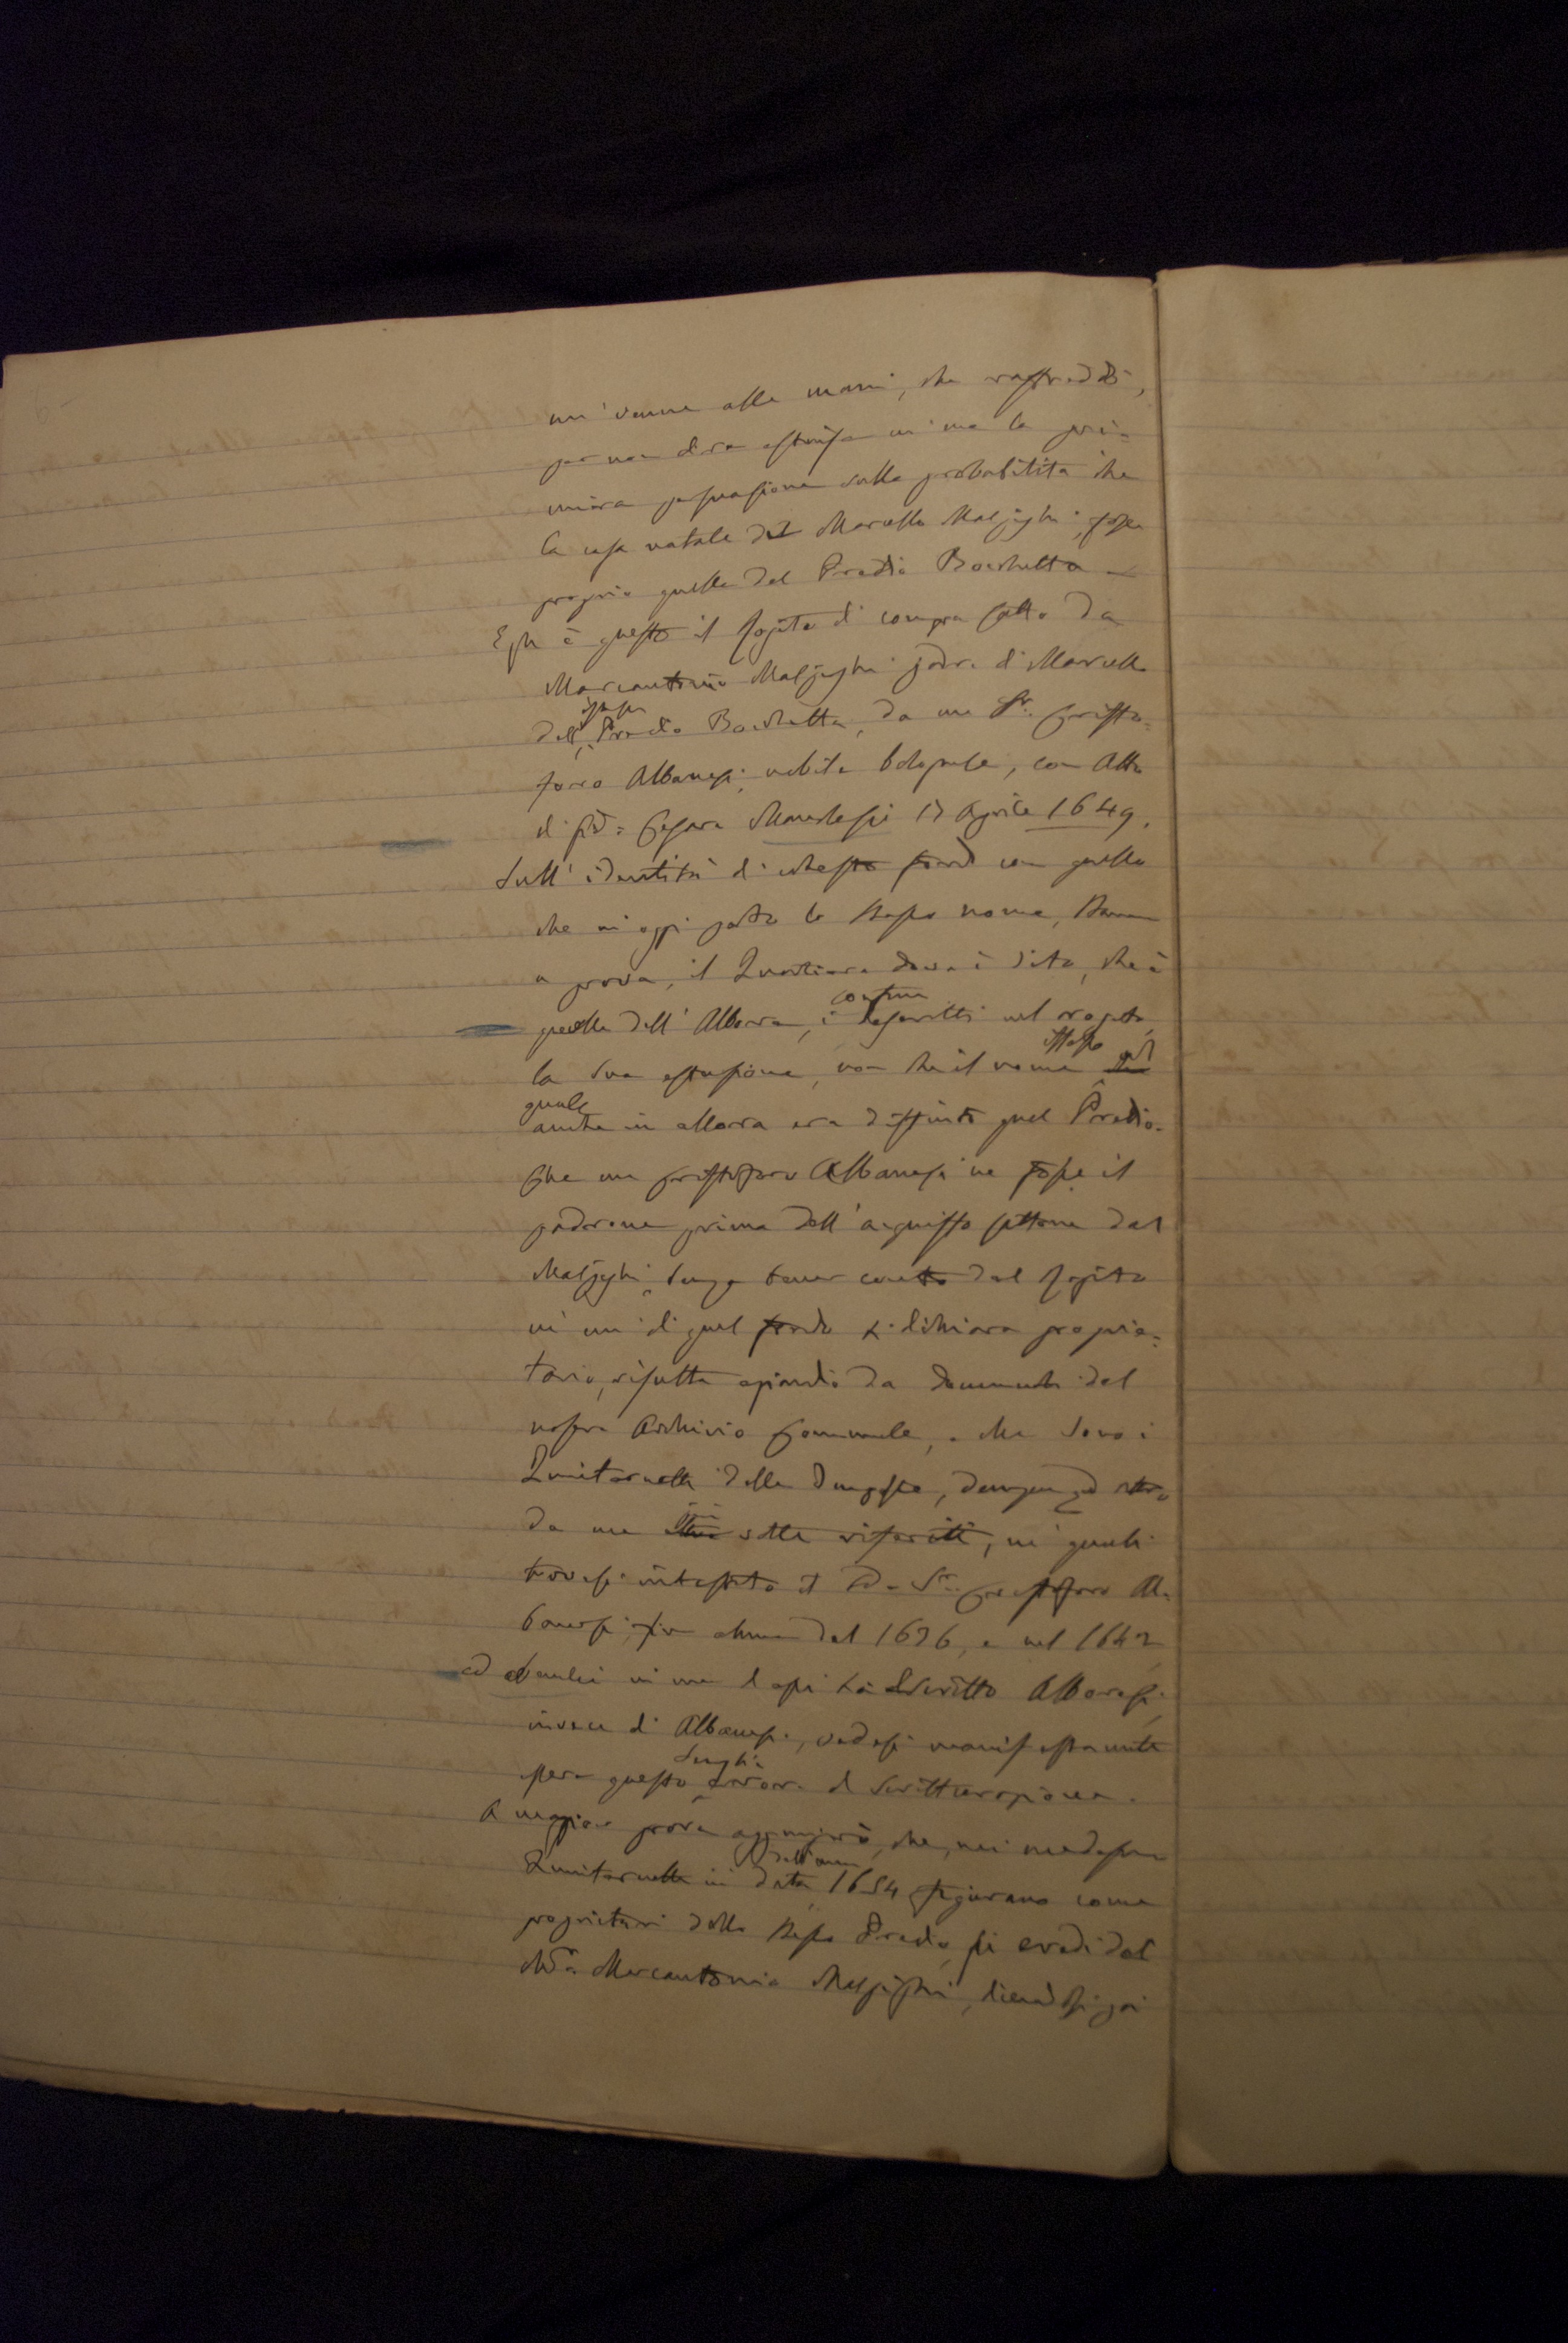 mi venne alle mani, che raffreddò,
per non dire estinse in me la pri=
miera persuasione sulla probabilità che
la casa natale del Marcello Malpighi fosse
proprio quella del Predio Bocchetta —
Egli è questo il Rogito di compra fatta da
Marcantonio Malpighi padre di Marcello
dell' istesso Predio Bocchetta, da un Sr. Cristo=
foro Albanesi, nobile bolognese, con Atto
di Cesare Marchesini 17 Aprile 1649.
Sull' identità di codesto fondo con quello
che in oggi porta lo stesso nome, stanno
a prova, il Quartiere dove è sito, che è
quello dell' Albera, i confini descritti nel rogito,
la sua estensione, non che il nome istesso col
quale anche in allora era distinto quel Predio.
Che un Cristoforo Albanesi ne fosse il
padrone prima dell' acquisto fattone dal
Malpighi, senza tener conto del Rogito
in cui di quel fondo si dichiara proprie=
tario, risulta eziandio da documenti del
nostro Archivio Comunale, e che sono i
Quinternetti delle
da me sotto riferiti, ne' quali
trovasi intestato il Sr. Cristoforo Al=
banesi fin dal 1636, e nel 1642
ed in me Albaresi
invece di Albanesi, vedesi manifestamente
essere questo sbaglio errore di scritturazione.
A maggior prova aggiungerò, che, nei medesimi
Quinternetti in data dell'anno 1654 figurano come
proprietari dello stesso Predio gli eredi del
Marcantonio Malpighi, dicendosi poi